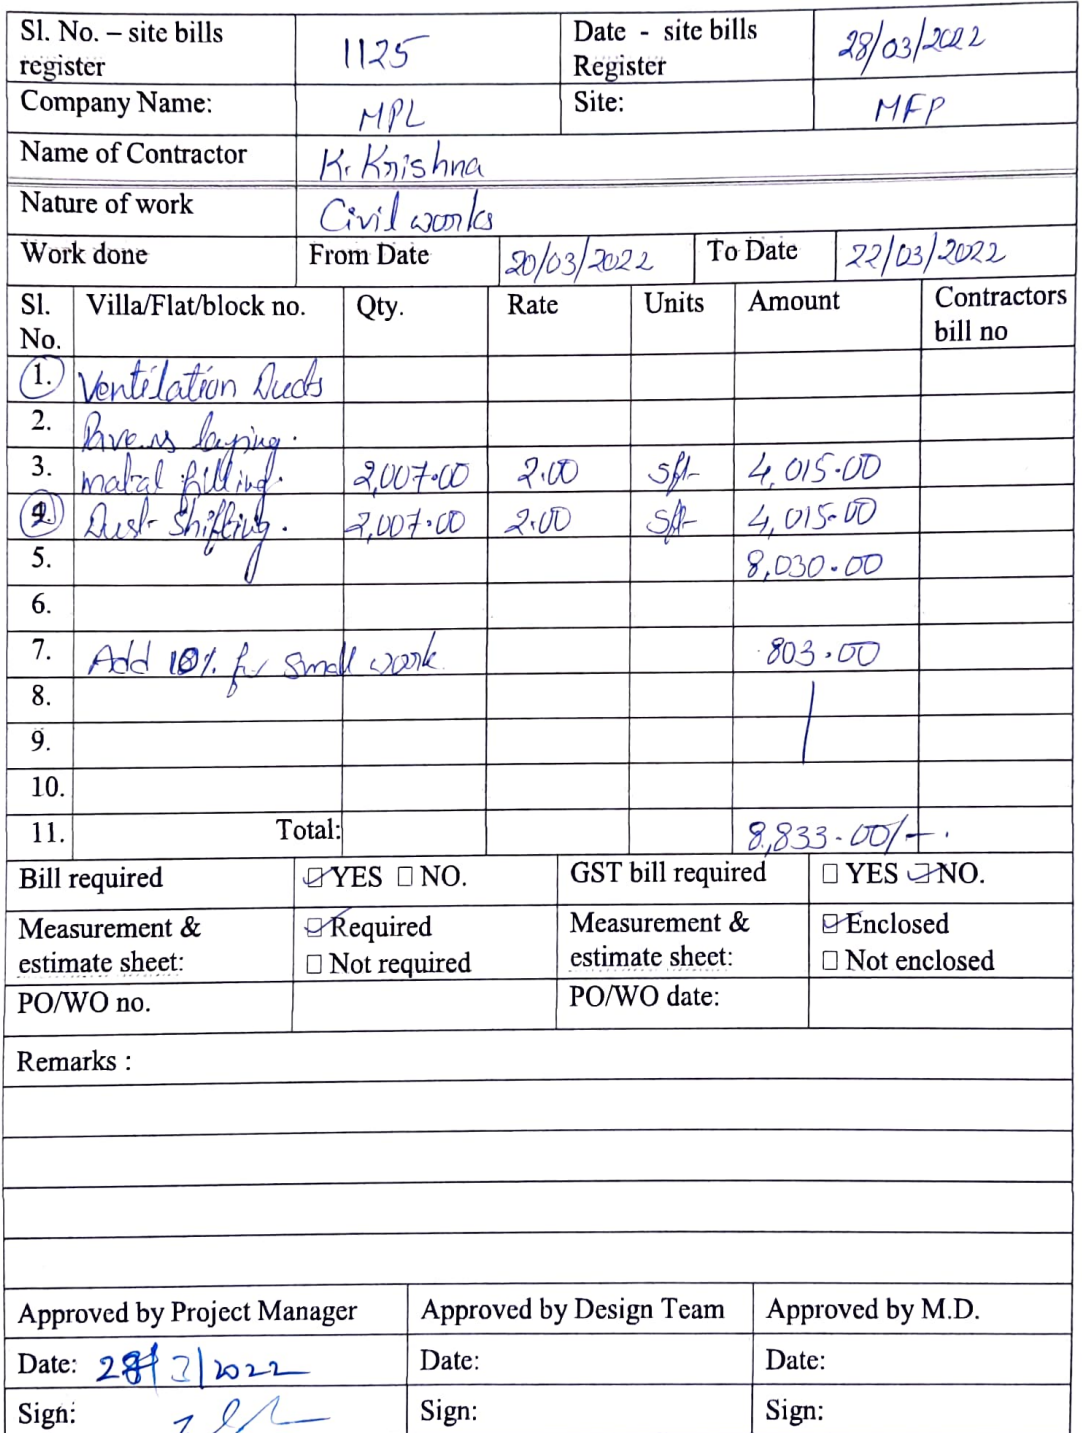 Sl. No. – site bills register 1125 Date - site bills Register 28/03/2022
Company Name: MPL Site: MFP
Name of Contractor K. Krishna
Nature of work Civil works
Work done From Date 20/03/2022 To Date 22/03/2022
Sl. No. Villa/Flat/block no. Qty. Rate Units Amount Contractors bill no
1. Ventilation Ducts
2. Pavers laying.
3. filling. 2,007.00 2.00 sft 4,015.00
2. Dust Shifting. 2,007.00 2.00 sft 4,015.00
5. 8,030.00
6.
7. Add 10% for small work 803.00
8.
9.
10.
11. Total: 8,833.00/-.
Bill required YES NO. GST bill required YES NO.
Measurement & estimate sheet: Required Not required Measurement & estimate sheet: Enclosed Not enclosed
PO/WO no. PO/WO date:
Remarks :
Approved by Project Manager Approved by Design Team Approved by M.D.
Date: 28/3/2022 Date: Date:
Sign: Sign: Sign: